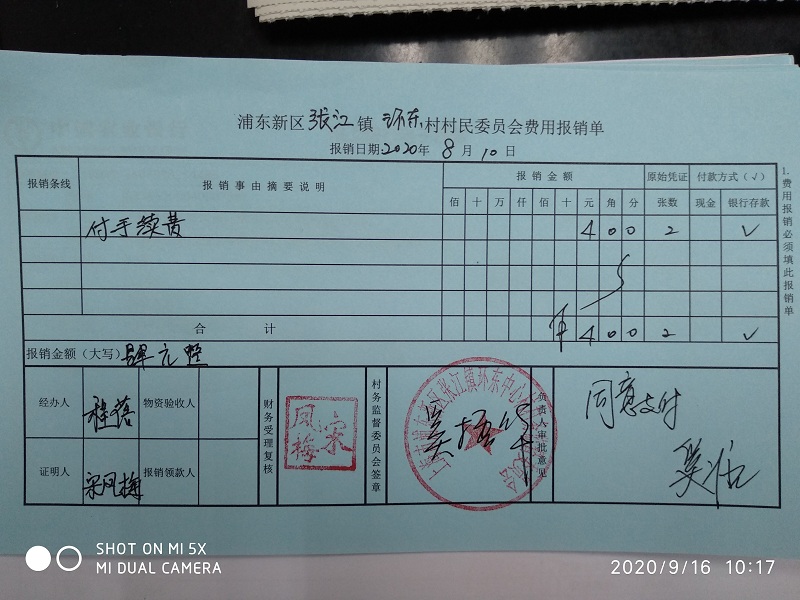 浦东新区张江镇环东村村民委员会费用报销单
报销日期2020年8月10日
报销条线 报销事由摘要说明 报销金额 原始凭证 付款方式(√)
佰十万仟佰十元角分 张数 现金 银行存款
付手续费 4 0 0 2 √
合计 4 0 0 2 √
报销金额(大写)肆元整
经办人 物资验收人 财务受理复核 凤梅宋 村务监督委员会签章 负责人审批意见 同意支付
证明人 宋凤梅 报销领款人
1.费用报销必须填此报销单
SHOT ON MI 5X
MI DUAL CAMERA
2020/9/16 10:17